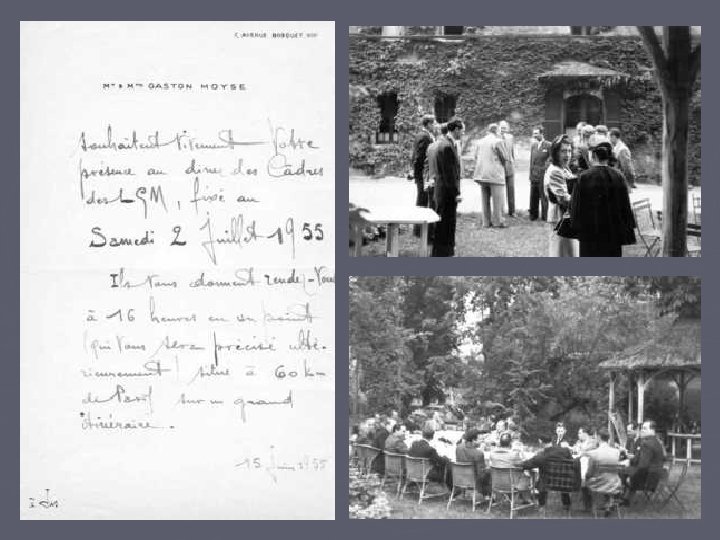 Mr & Mme GASTON MOYSE
souhaitent vivement Votre
présence au diner des Cadres
des LGM, fixé au
Samedi 2 Juillet 1955
Ils Vous donnent rendez-Vous
à 16 heures en un point
(qui Vous sera précisé ulté-
rieurement) situé à 60 km
de Paris sur un grand
itinéraire.
15 Juin 1955